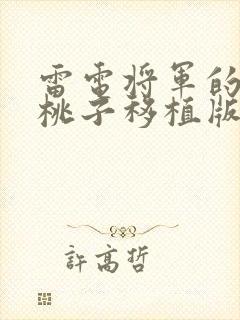 雷電将軍的
桃子移植版
許高哲